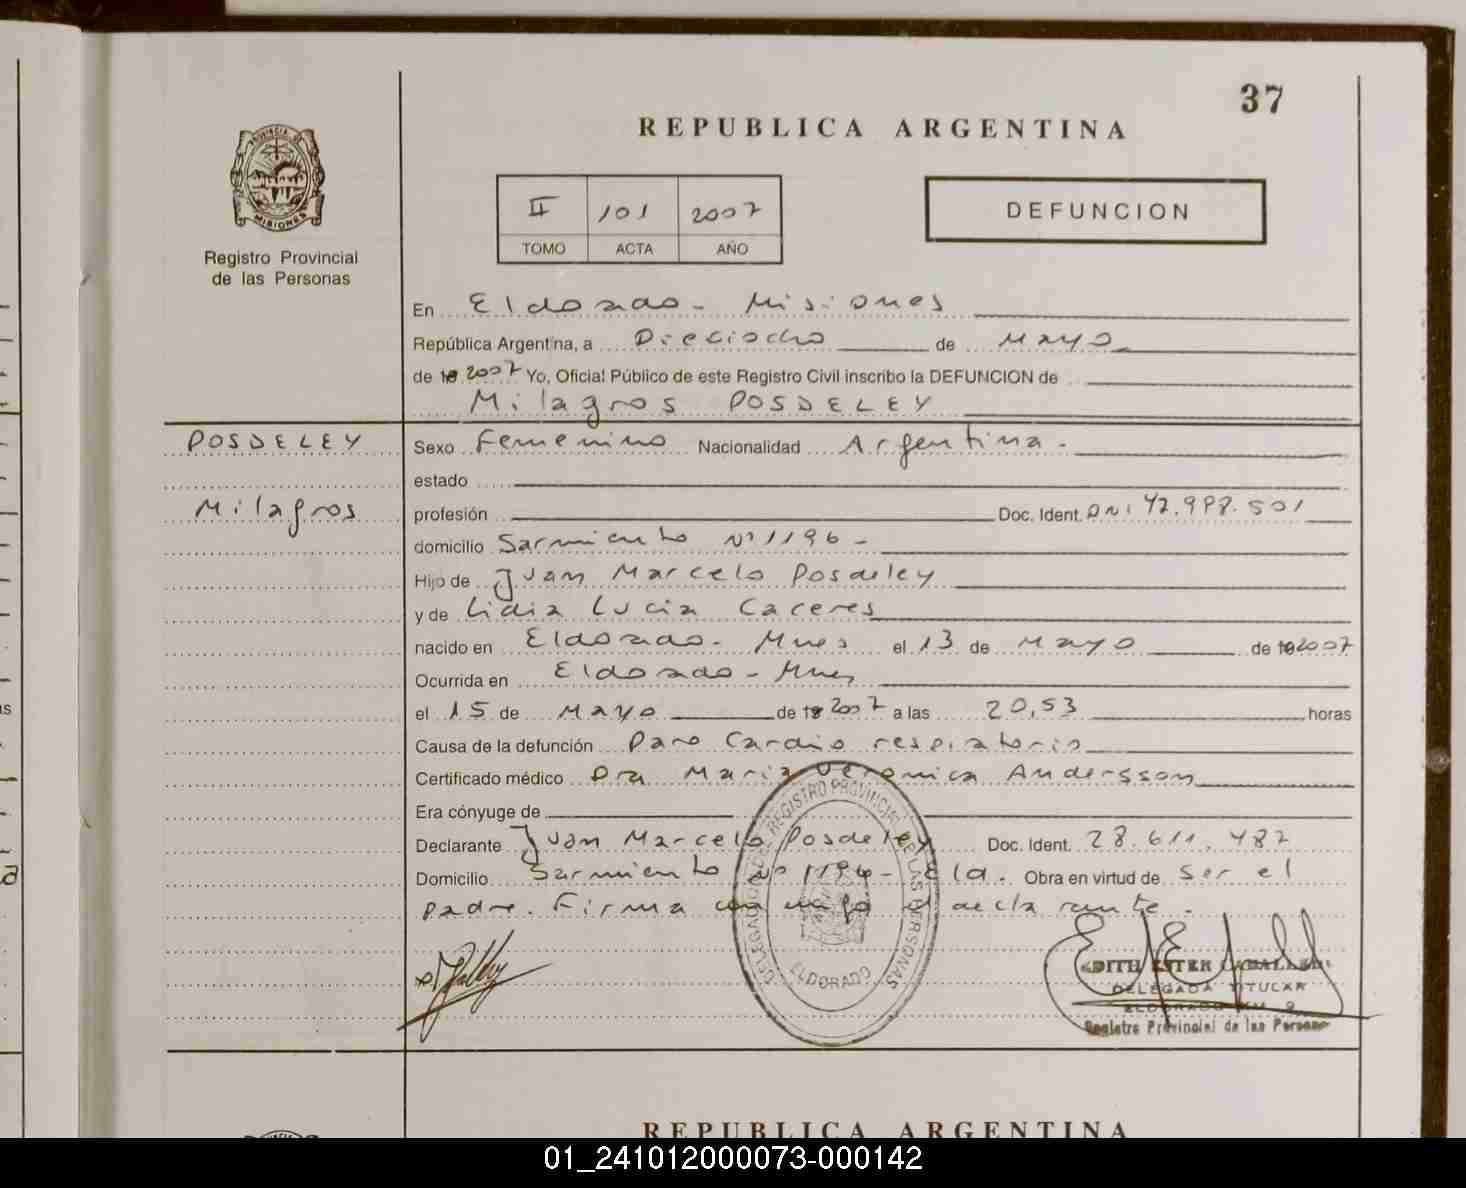 37
REPUBLICA ARGENTINA
PROVINCIA DE
MISIONES
Registro Provincial
de las Personas
II 101 2007
TOMO ACTA AÑO
DEFUNCION
En Eldorado - Misiones
República Argentina, a Dieciocho de Mayo
de 19 2007 Yo, Oficial Público de este Registro Civil inscribo la DEFUNCION de
Milagros POSDELEY
POSDELEY
Milagros
Sexo Femenino Nacionalidad Argentina.
estado
profesión Doc. Ident. DNI 42.998.501
domicilio Sarmiento Nº 1196 -
Hijo de Juan Marcelo Posdeley
y de Lidia Lucia Caceres
nacido en Eldorado - Mnes el 13 de Mayo de 19 2007
Ocurrida en Eldorado - Mnes
el 15 de Mayo de 19 2007 a las 20,53 horas
Causa de la defunción Paro Cardio respiratorio
Certificado médico Dra Maria Veronica Andersson
Era cónyuge de
Declarante Juan Marcelo Posdeley Doc. Ident. 28.611.487
Domicilio Sarmiento Nº 1196 - Eld. Obra en virtud de Ser el
padre. Firma con migo el declarante.
DELEGACION DEL REGISTRO PROVINCIAL DE LAS PERSONAS
ELDORADO
EDITH ESTER CABALLERO
DELEGADA TITULAR
ELDORADO KM. 9
Registro Provincial de las Personas
REPUBLICA ARGENTINA
01_241012000073-000142